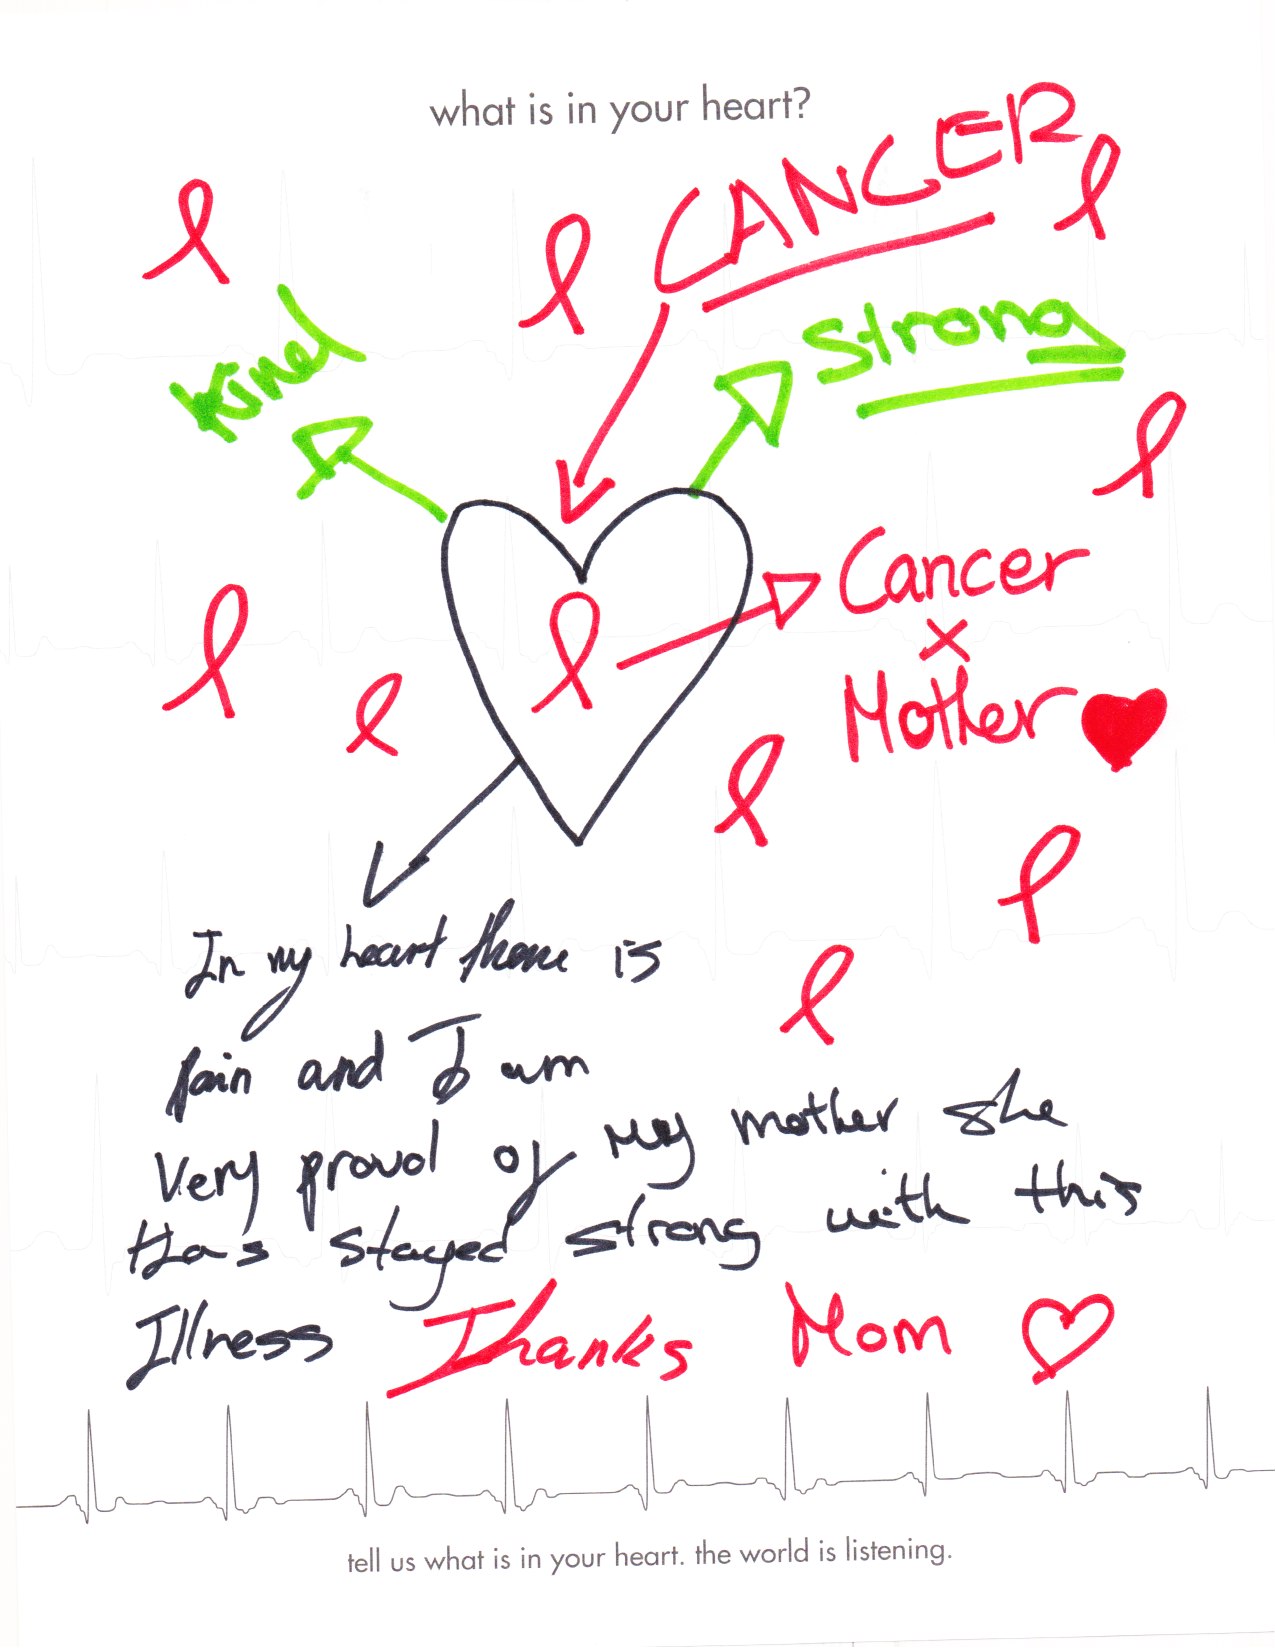 what is in your heart?
CANCER
Kind
Strong
Cancer
x
Mother
In my heart there is
pain and I am
Very proud of My mother she
Has stayed strong with this
Illness Thanks Mom
tell us what is in your heart. the world is listening.